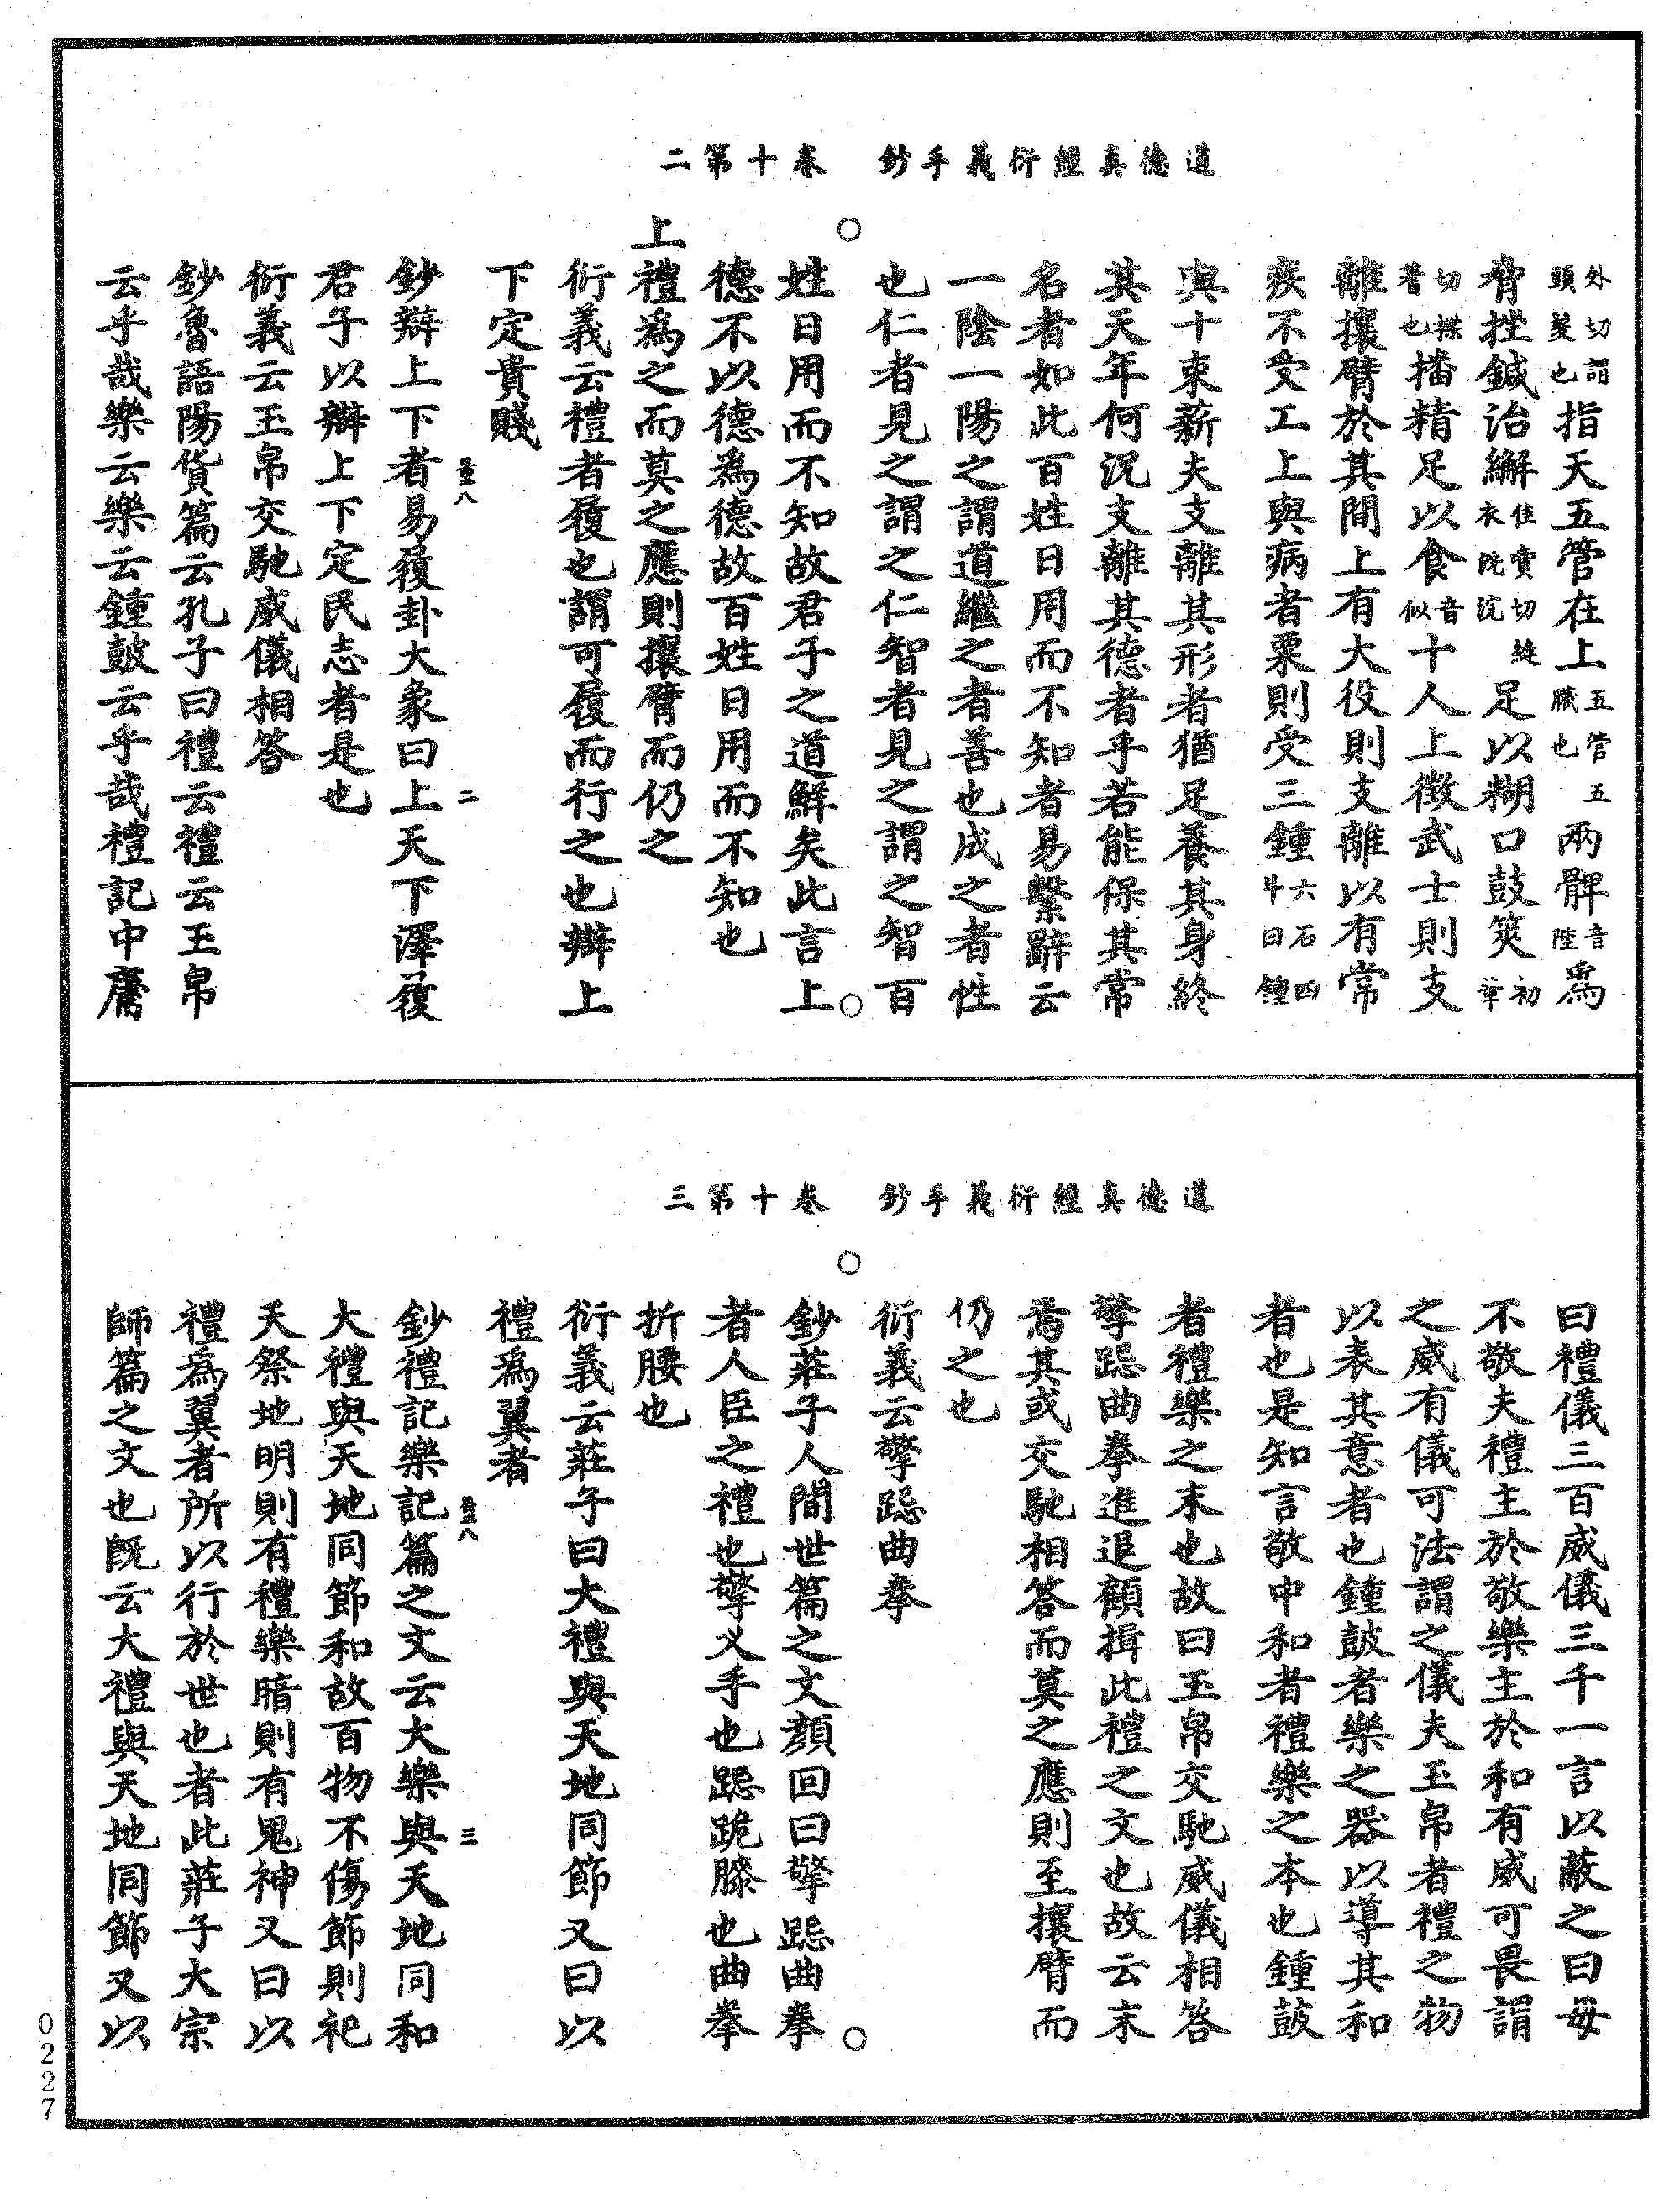 道德真經衍義手鈔　卷十第二
外切謂頭髮也指天五管在上五管五臟也兩髀音陛爲
脅挫鍼治繲佳賣切縫衣浣浣足以糊口鼓筴初革
切揲蓍也播精足以食音似十人上徵武士則支
離攘臂於其間上有大役則支離以有常
疾不受工上與病者粟則受三鍾六石四斗曰鍾
與十束薪夫支離其形者猶足養其身終
其天年何況支離其德者乎若能保其常
名者如此百姓日用而不知者易繫辭云
一陰一陽之謂道繼之者善也成之者性
也仁者見之謂之仁智者見之謂之智百
○
姓日用而不知故君子之道鮮矣此言上
○
德不以德爲德故百姓日用而不知也
上禮爲之而莫之應則攘臂而仍之
衍義云禮者履也謂可履而行之也辯上
下定貴賤
鈔辯上下者易履卦大象曰上天下澤履
二
君子以辯上下定民志者是也
衍義云玉帛交馳威儀相答
鈔魯語陽貨篇云孔子曰禮云禮云玉帛
云乎哉樂云樂云鍾鼓云乎哉禮記中庸
道德真經衍義手鈔　卷十第三
曰禮儀三百威儀三千一言以蔽之曰毋
不敬夫禮主於敬樂主於和有威可畏謂
之威有儀可法謂之儀夫玉帛者禮之物
以表其意者也鍾鼓者樂之器以導其和
者也是知言敬中和者禮樂之本也鍾鼓
者禮樂之末也故曰玉帛交馳威儀相答
擎跽曲拳進退顧揖此禮之文也故云末
焉其或交馳相答而莫之應則至攘臂而
仍之也
衍義云擎跽曲拳
○
鈔莊子人間世篇之文顏回曰擎跽曲拳
○
者人臣之禮也擎乂手也跽跪膝也曲拳
折腰也
衍義云莊子曰大禮與天地同節又曰以
禮爲翼者
鈔禮記樂記篇之文云大樂與天地同和
三
大禮與天地同節和故百物不傷節則祀
天祭地明則有禮樂暗則有鬼神又曰以
禮爲翼者所以行於世也者此莊子大宗
師篇之文也既云大禮與天地同節又以
0227